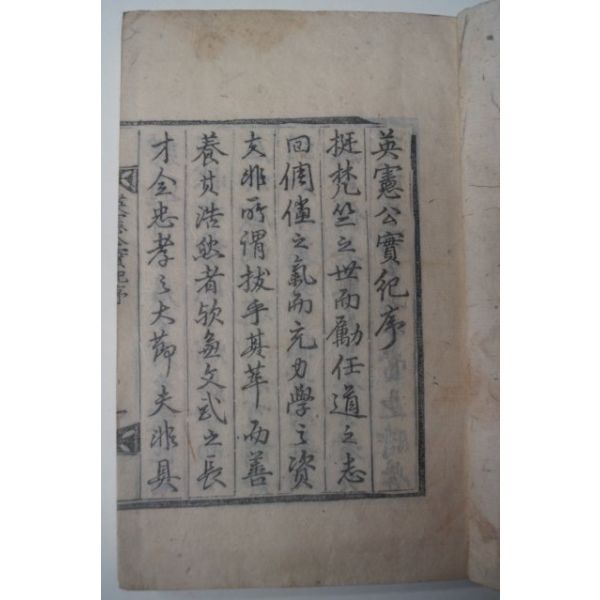 英憲公實紀序
挺梵竺之世而勵任道之志
回倜儻之氣而充力學之資
文非所謂拔乎其萃而善
養其浩然者欤兼文武之長
才全忠孝之大節夫非具
英憲公實紀序
一